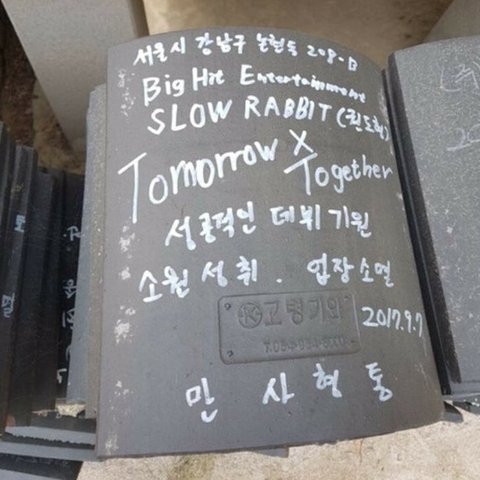 서울시 강남구 논현동 208-8
Big Hit Entertainment
SLOW RABBIT (권도형)
Tomorrow X Together
성공적인 데뷔 기원
소원성취 . 업장소멸
고령기와
2017.9.7
만 사 형 통